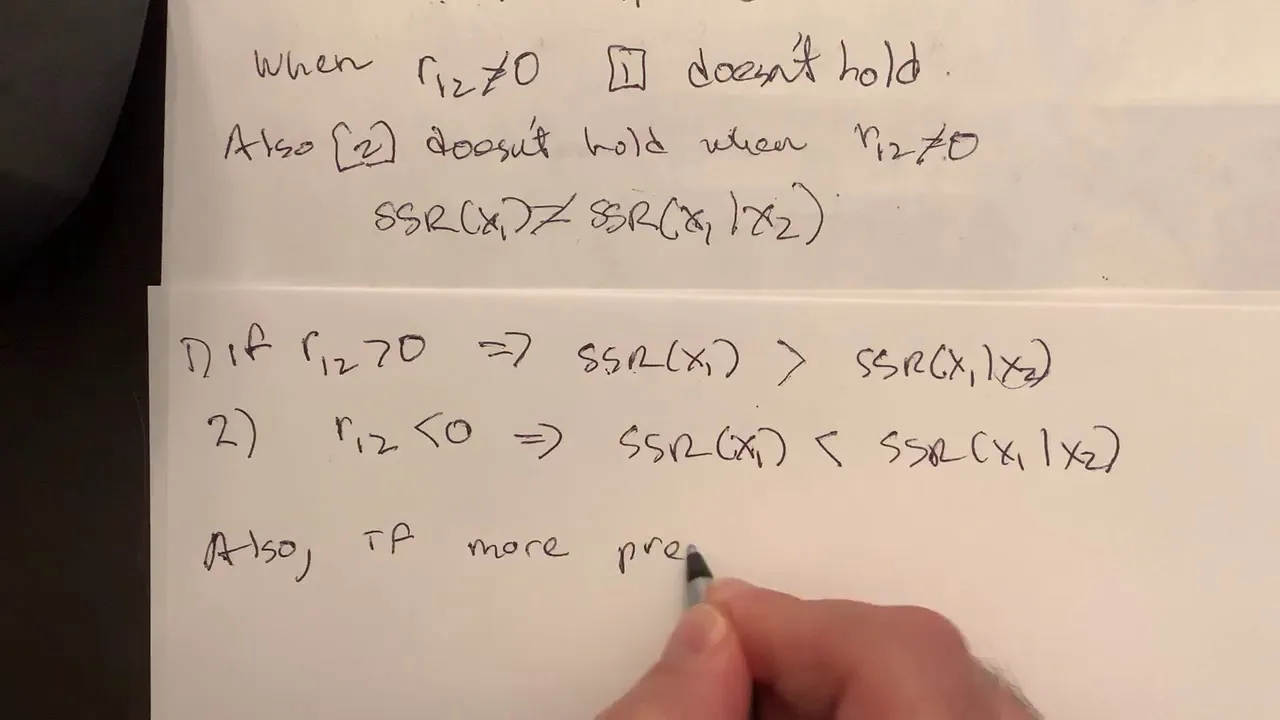 when r₁₂≠0 [1] doesn't hold.
Also [2] doesn't hold when r₁₂≠0
SSR(x₁)≠SSR(x₁|x₂)
1) if r₁₂>0 => SSR(x₁) > SSR(x₁|x₂)
2) r₁₂<0 => SSR(x₁) < SSR(x₁|x₂)
Also, if more pre